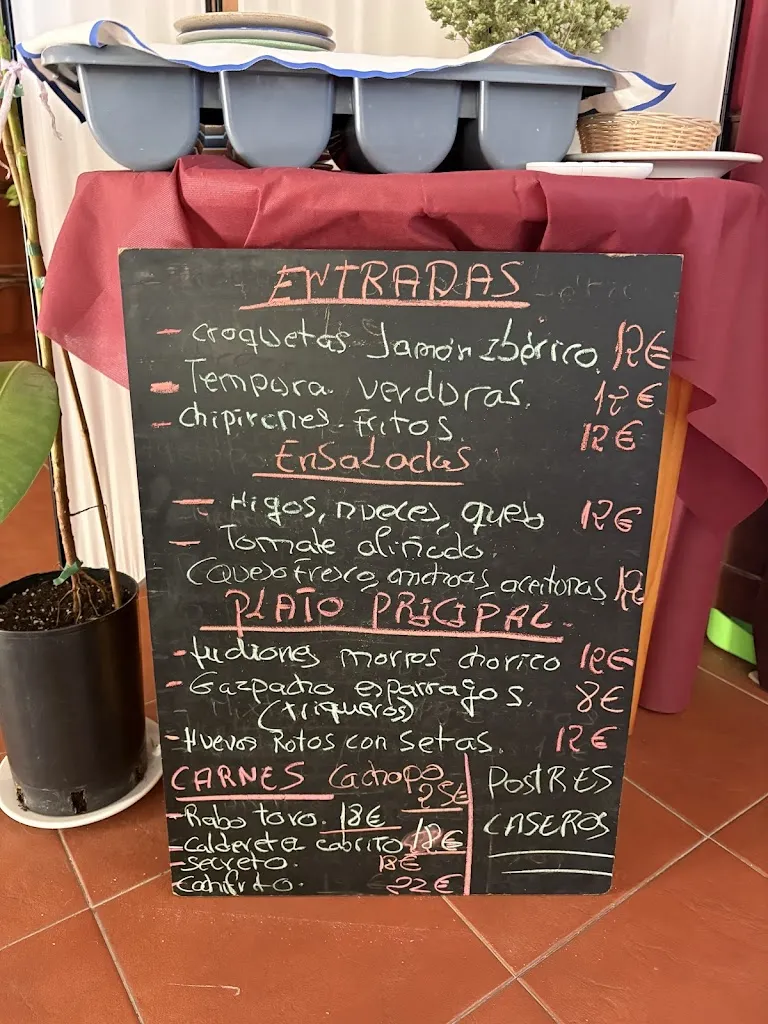 ENTRADAS
- croquetas Jamón Ibérico. 12€
- Tempura verduras. 12€
- chipirones fritos. 12€
Ensaladas
- Higos, nueces, queso 12€
- Tomate aliñado.
(Queso fresco, anchoas, aceitunas 12€
PLATO PRICIPAL.
- Judiones morros chorico 12€
- Gazpacho esparragos. 8€
(triqueros)
- Huevos Rotos con setas. 12€
CARNES Cachopo 25€
- Rabo toro. 18€
- Caldereta cabrito 18€
- secreto. 18€
- cochifrito. 22€
POSTRES
CASEROS